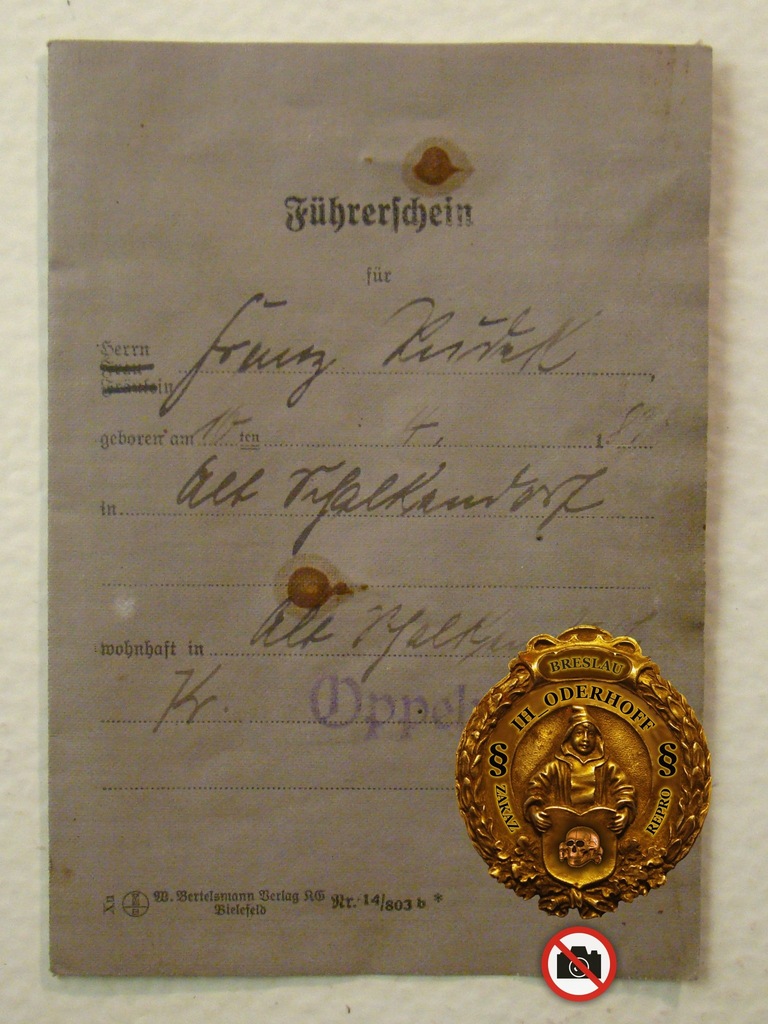 Führerschein
für
Herrn
Frau
Fräulein
Franz Rudek
geboren am 10 ten 4. 1
in Alt Schalkendorf
wohnhaft in Alt Schalkendorf
Kr. Oppeln
Xa W. Bertelsmann Verlag KG Nr. 14/803 b *
Bielefeld
BRESLAU
IH ODERHOFF
§ §
ZAKAZ REPRO